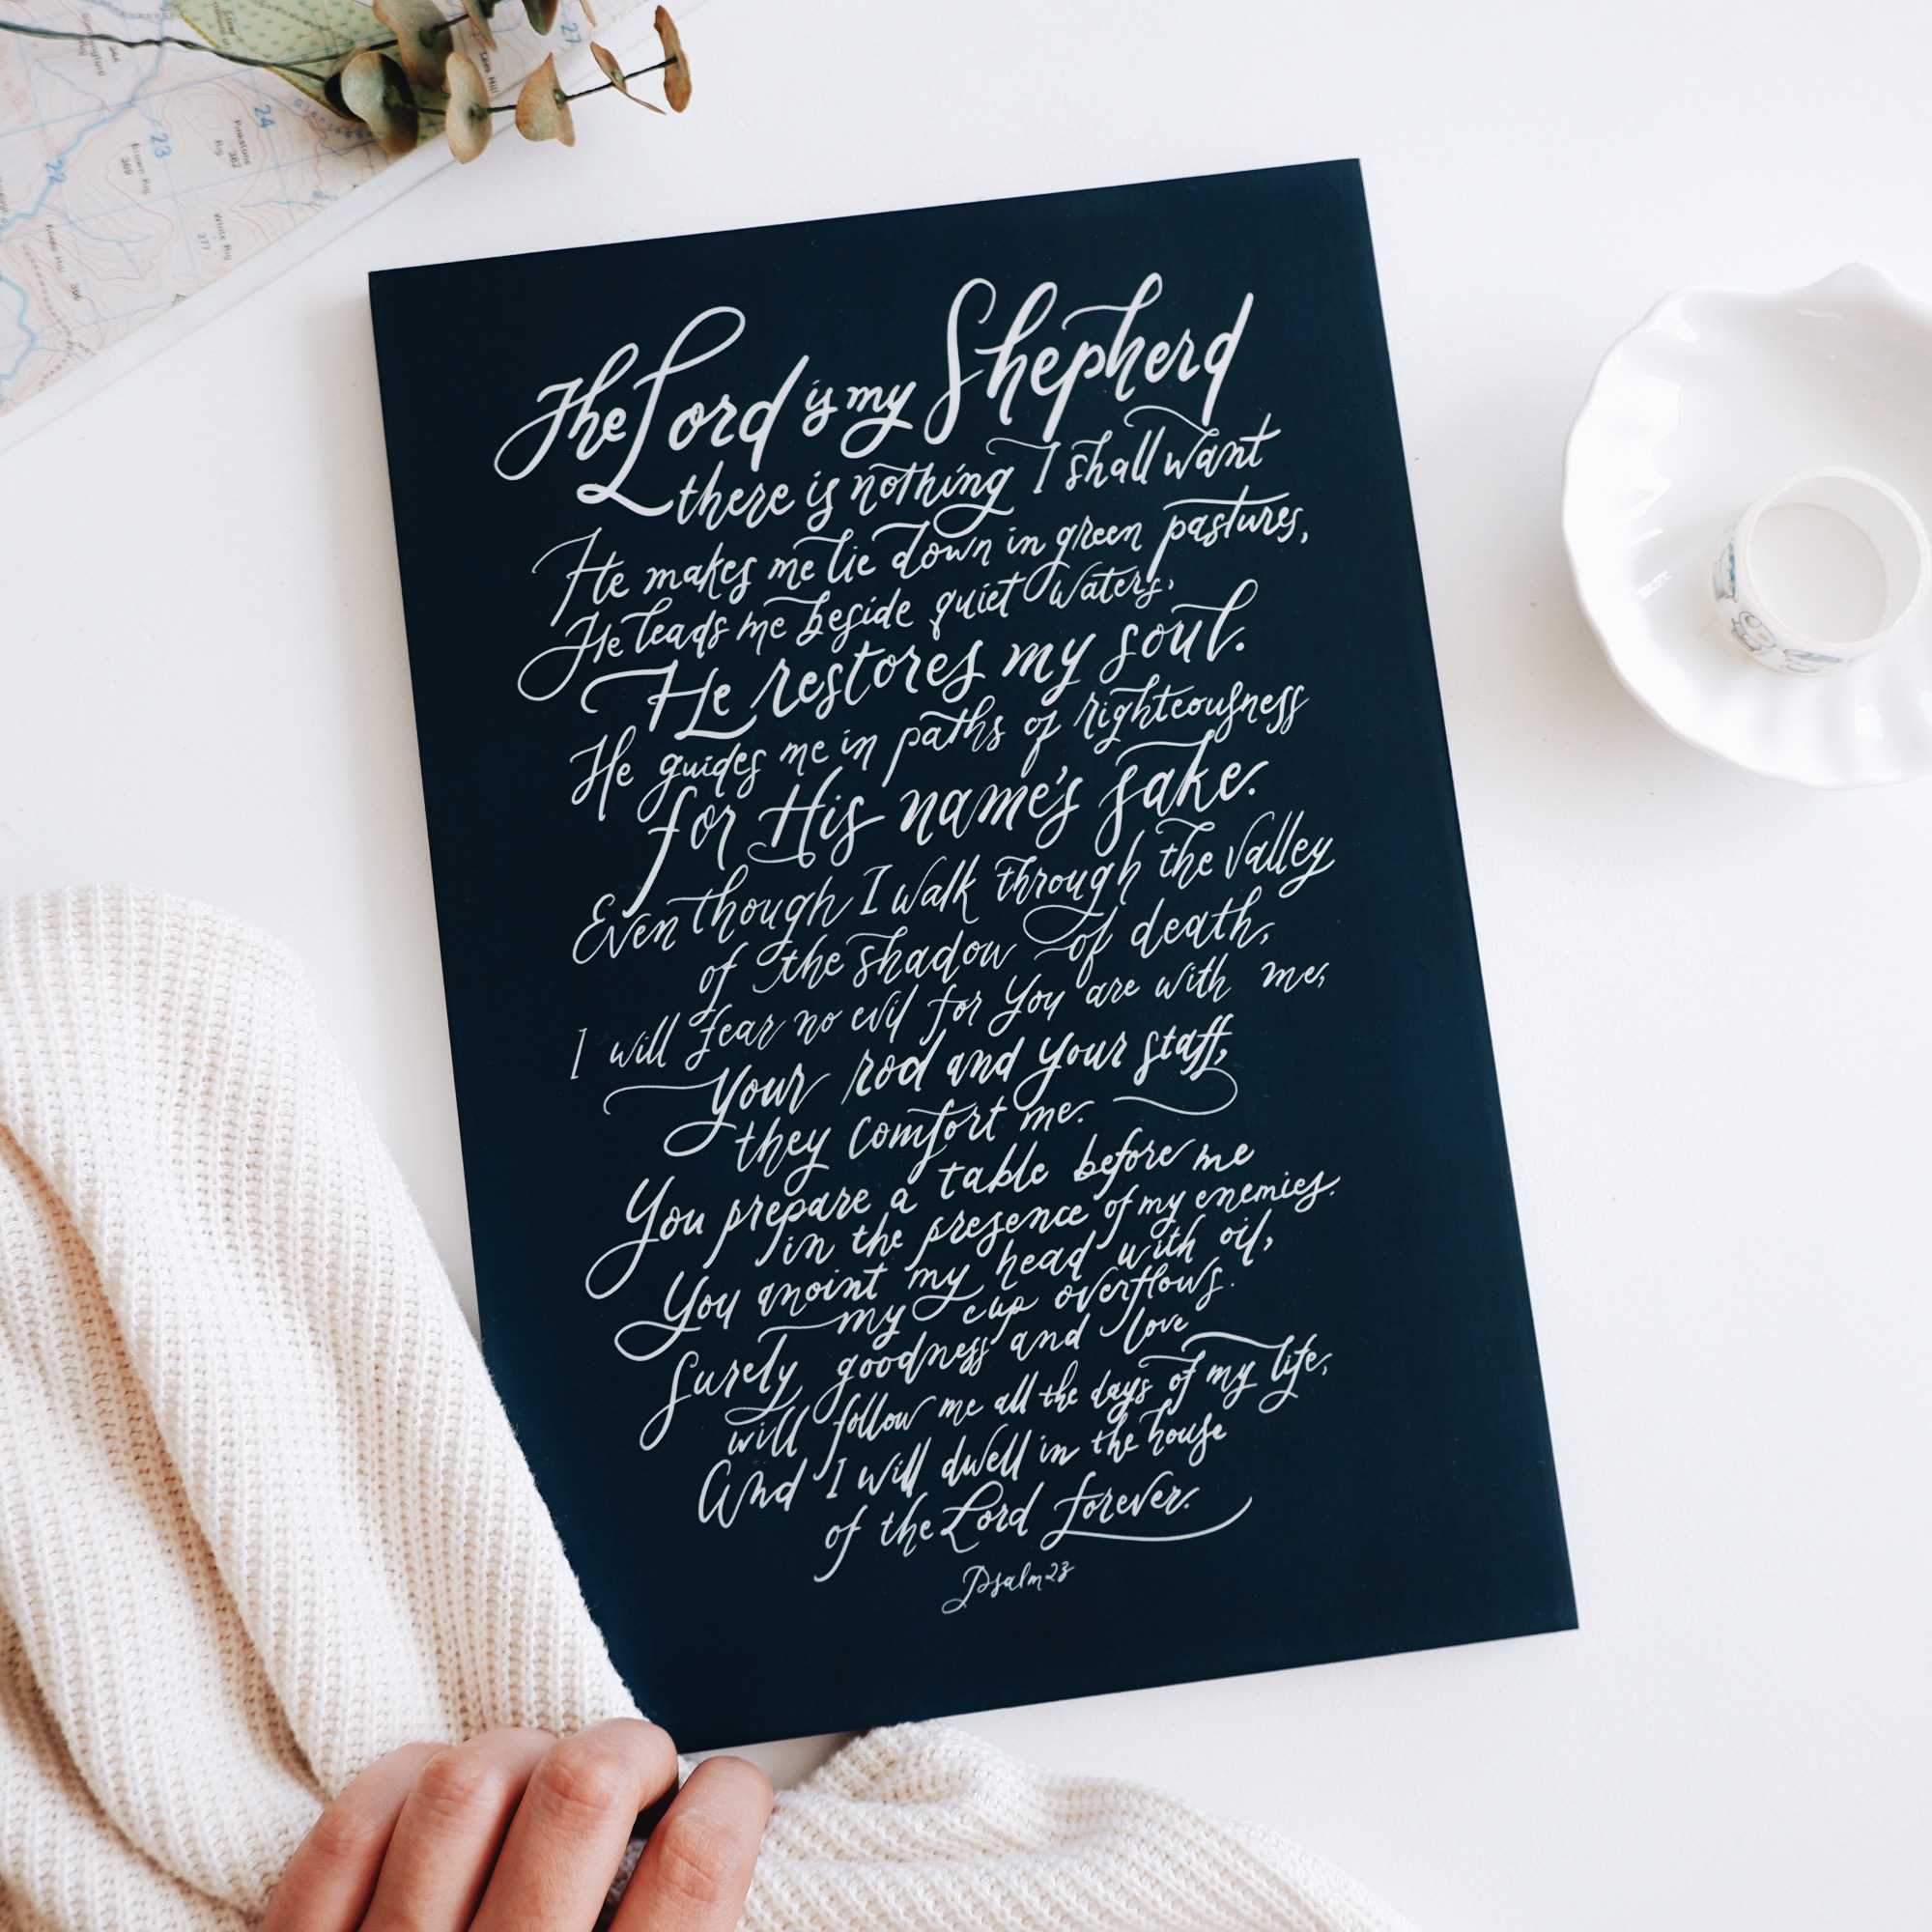 The Lord is my Shepherd
there is nothing I shall want
He makes me lie down in green pastures,
He leads me beside quiet waters,
He restores my soul.
He guides me in paths of righteousness
for His name's sake.
Even though I walk through the valley
of the shadow of death,
I will fear no evil for You are with me,
Your rod and your staff,
they comfort me.
You prepare a table before me
in the presence of my enemies.
You anoint my head with oil,
my cup overflows.
Surely goodness and love
will follow me all the days of my life,
And I will dwell in the house
of the Lord forever.
Psalm 23
22
23
24
27